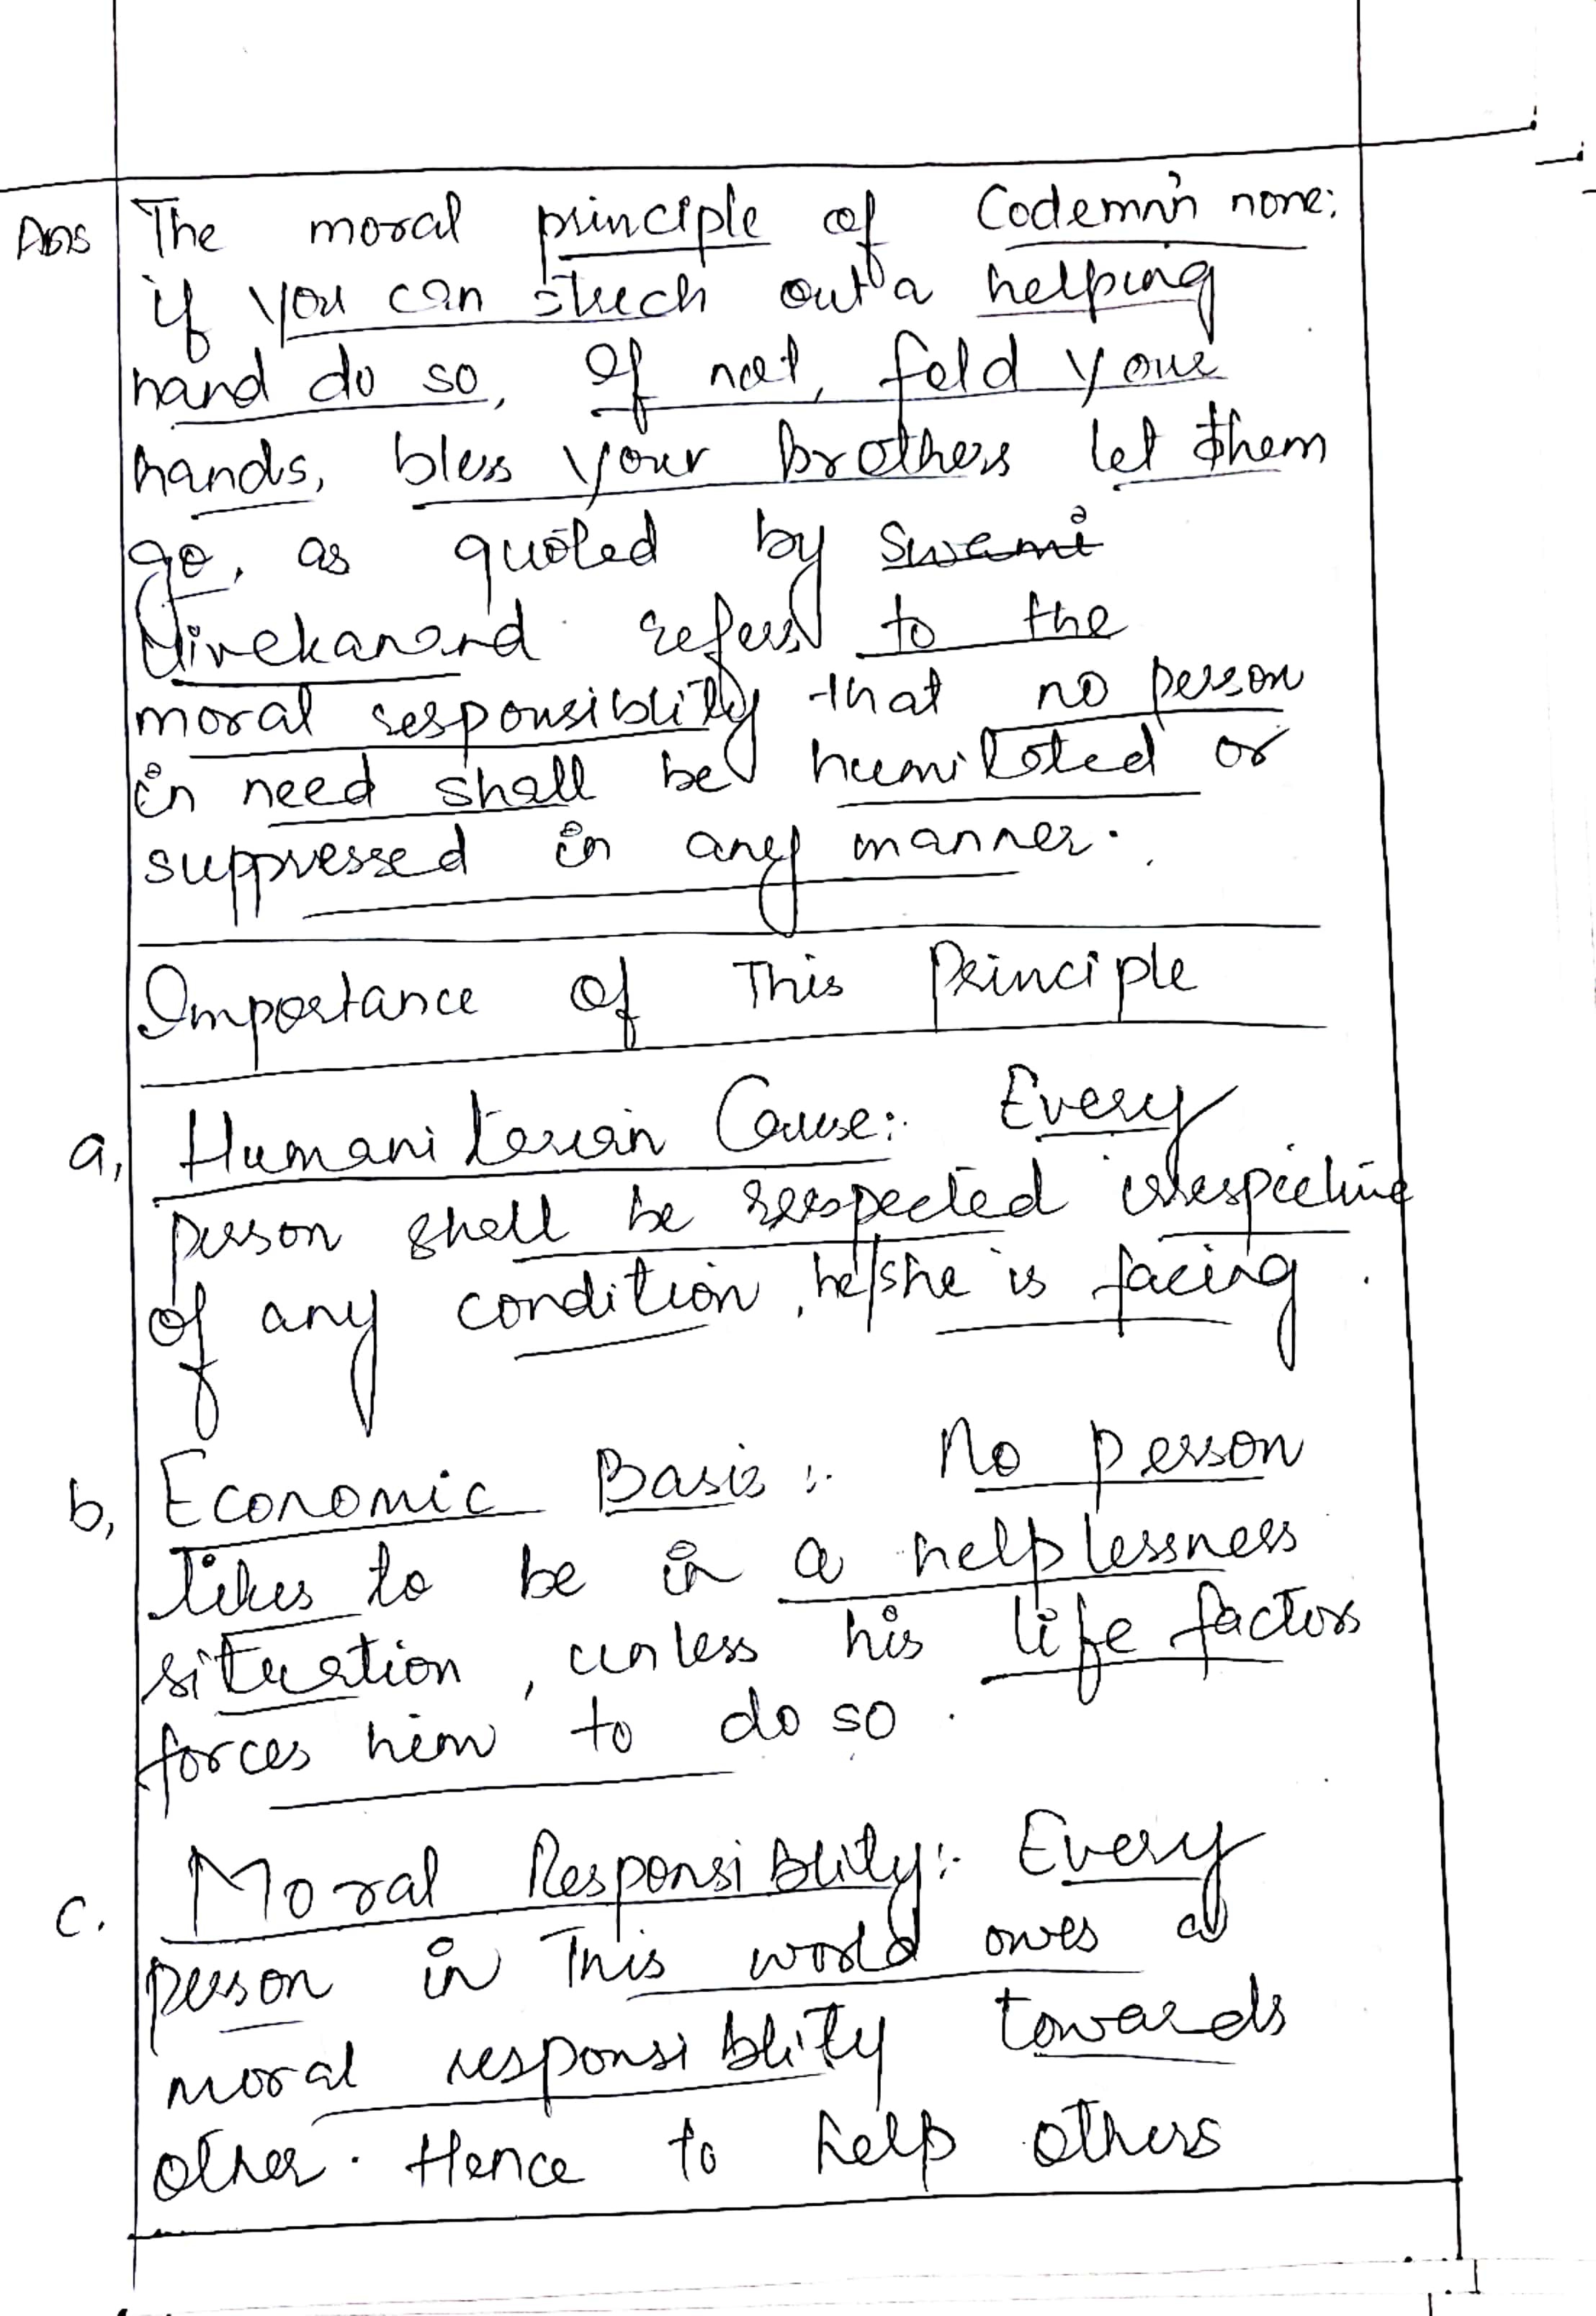 Ans The moral principle of Codemnin none:
if you can strech out a helping
hand do so, If not, fold your
hands, bless your brothers let them
go, as quoted by Swami
Vivekanand refers to the
moral responsiblity that no person
in need shall be humiliated or
suppressed in any manner.
Importance of This Principle
a, Humanitarian Cause:- Every
person shall be respected irrespective
of any condition, he/she is facing.
b, Economic Basis:- No person
likes to be in a helplessness
situation, unless his life factors
forces him to do so.
c. Moral Responsiblity:- Every
person in This world owes a
moral responsiblity towards
other. Hence to help others